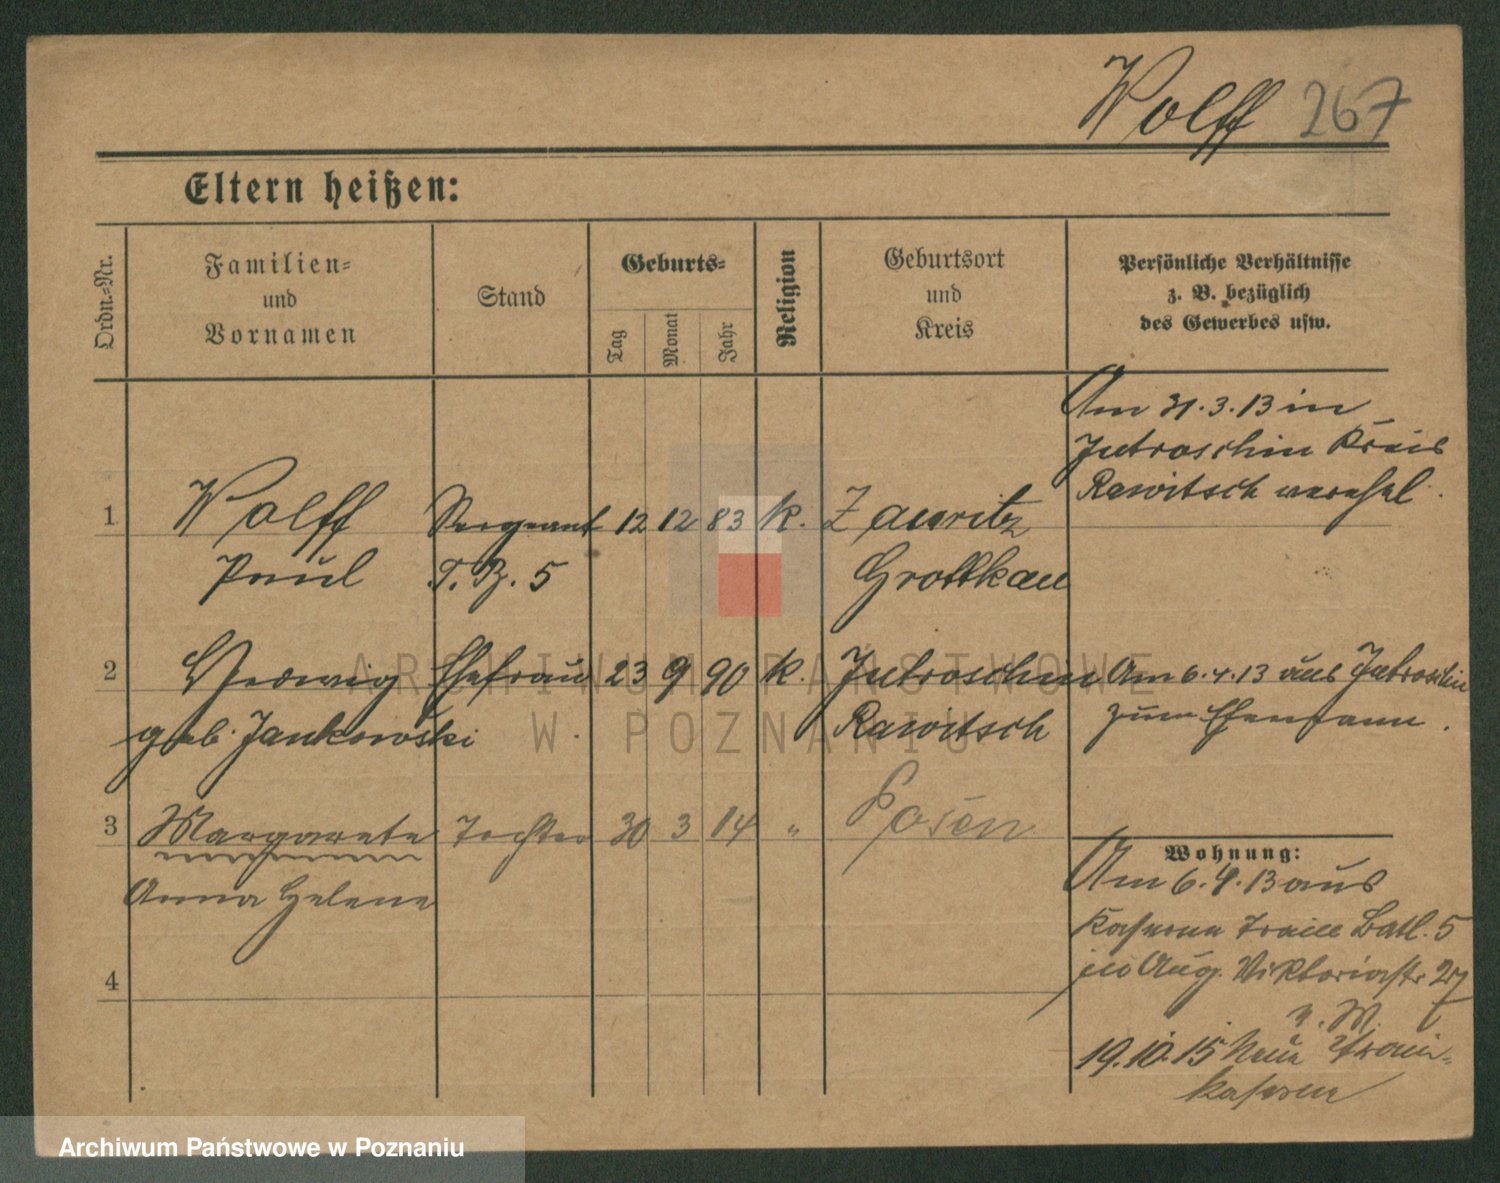 Wolff 267
Eltern heißen:
Ordn.-Nr.
Familien-
und
Vornamen
Stand
Geburts-
Tag
Monat
Jahr
Religion
Geburtsort
und
Kreis
Persönliche Verhältnisse
z. B. bezüglich
des Gewerbes usw.
Am 31.3.13 in
Jutroschin Kreis
Rawitsch verehel.
1 Wolff Sergeant 12 12 83 k. Zauritz
Paul T. B. 5 Grottkau
2 Hedwig Ehefrau 23 9 90 k. Jutroschin Am 6.4.13 aus Jutroschin
geb. Jankowski Rawitsch zum Ehemann.
3 Margarete Tochter 30 3 14 " Posen
Anna Helene
4
Wohnung:
Am 6.4.13 aus
Kaserne Train Batl. 5
Aug. Viktoriastr 27
v. M.
19.10.15 Neue Train-
kaserne
ARCHIWUM PAŃSTWOWE
W POZNANIU
Archiwum Państwowe w Poznaniu